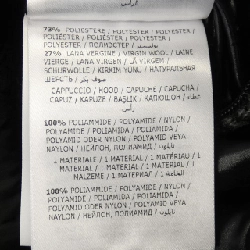 73% POLIESTERE / POLYESTER / POLYESTER /
POLIÉSTER / POLIÉSTER / POLYESTER /
POLYESTER / ПОЛИЭСТЕР /
27% LANA VERGINE / VIRGIN WOOL / LAINE
VIERGE / LANA VIRGEN / LÃ VIRGEM /
SCHURWOLLE / KIRKIM YÜNÜ / НАТУРАЛЬНАЯ
ШЕРСТЬ /
CAPPUCCIO / HOOD / CAPUCHE / CAPUCHA /
CAPUZ / KAPUZE / BAŞLIK / КАПЮШОН /
100% POLIAMMIDE / POLYAMIDE / NYLON /
POLYAMIDE / POLIAMIDA / POLIAMIDA /
POLYAMID ODER NYLON / POLYAMID VEYA
NAYLON / НЕЙЛОН, ПОЛИАМИД / نايلون
1 MATERIALE / 1 MATERIAL / 1 MATÉRIAU / 1
MATERIAL / 1 MATERIAL / 1 MATERIAL / 1
MALZEME / 1 МАТЕРИАЛ /
100% POLIAMMIDE / POLYAMIDE / NYLON /
POLYAMIDE / POLIAMIDA / POLIAMIDA /
POLYAMID ODER NYLON / POLYAMID VEYA
NAYLON / НЕЙЛОН, ПОЛИАМИД / نايلون